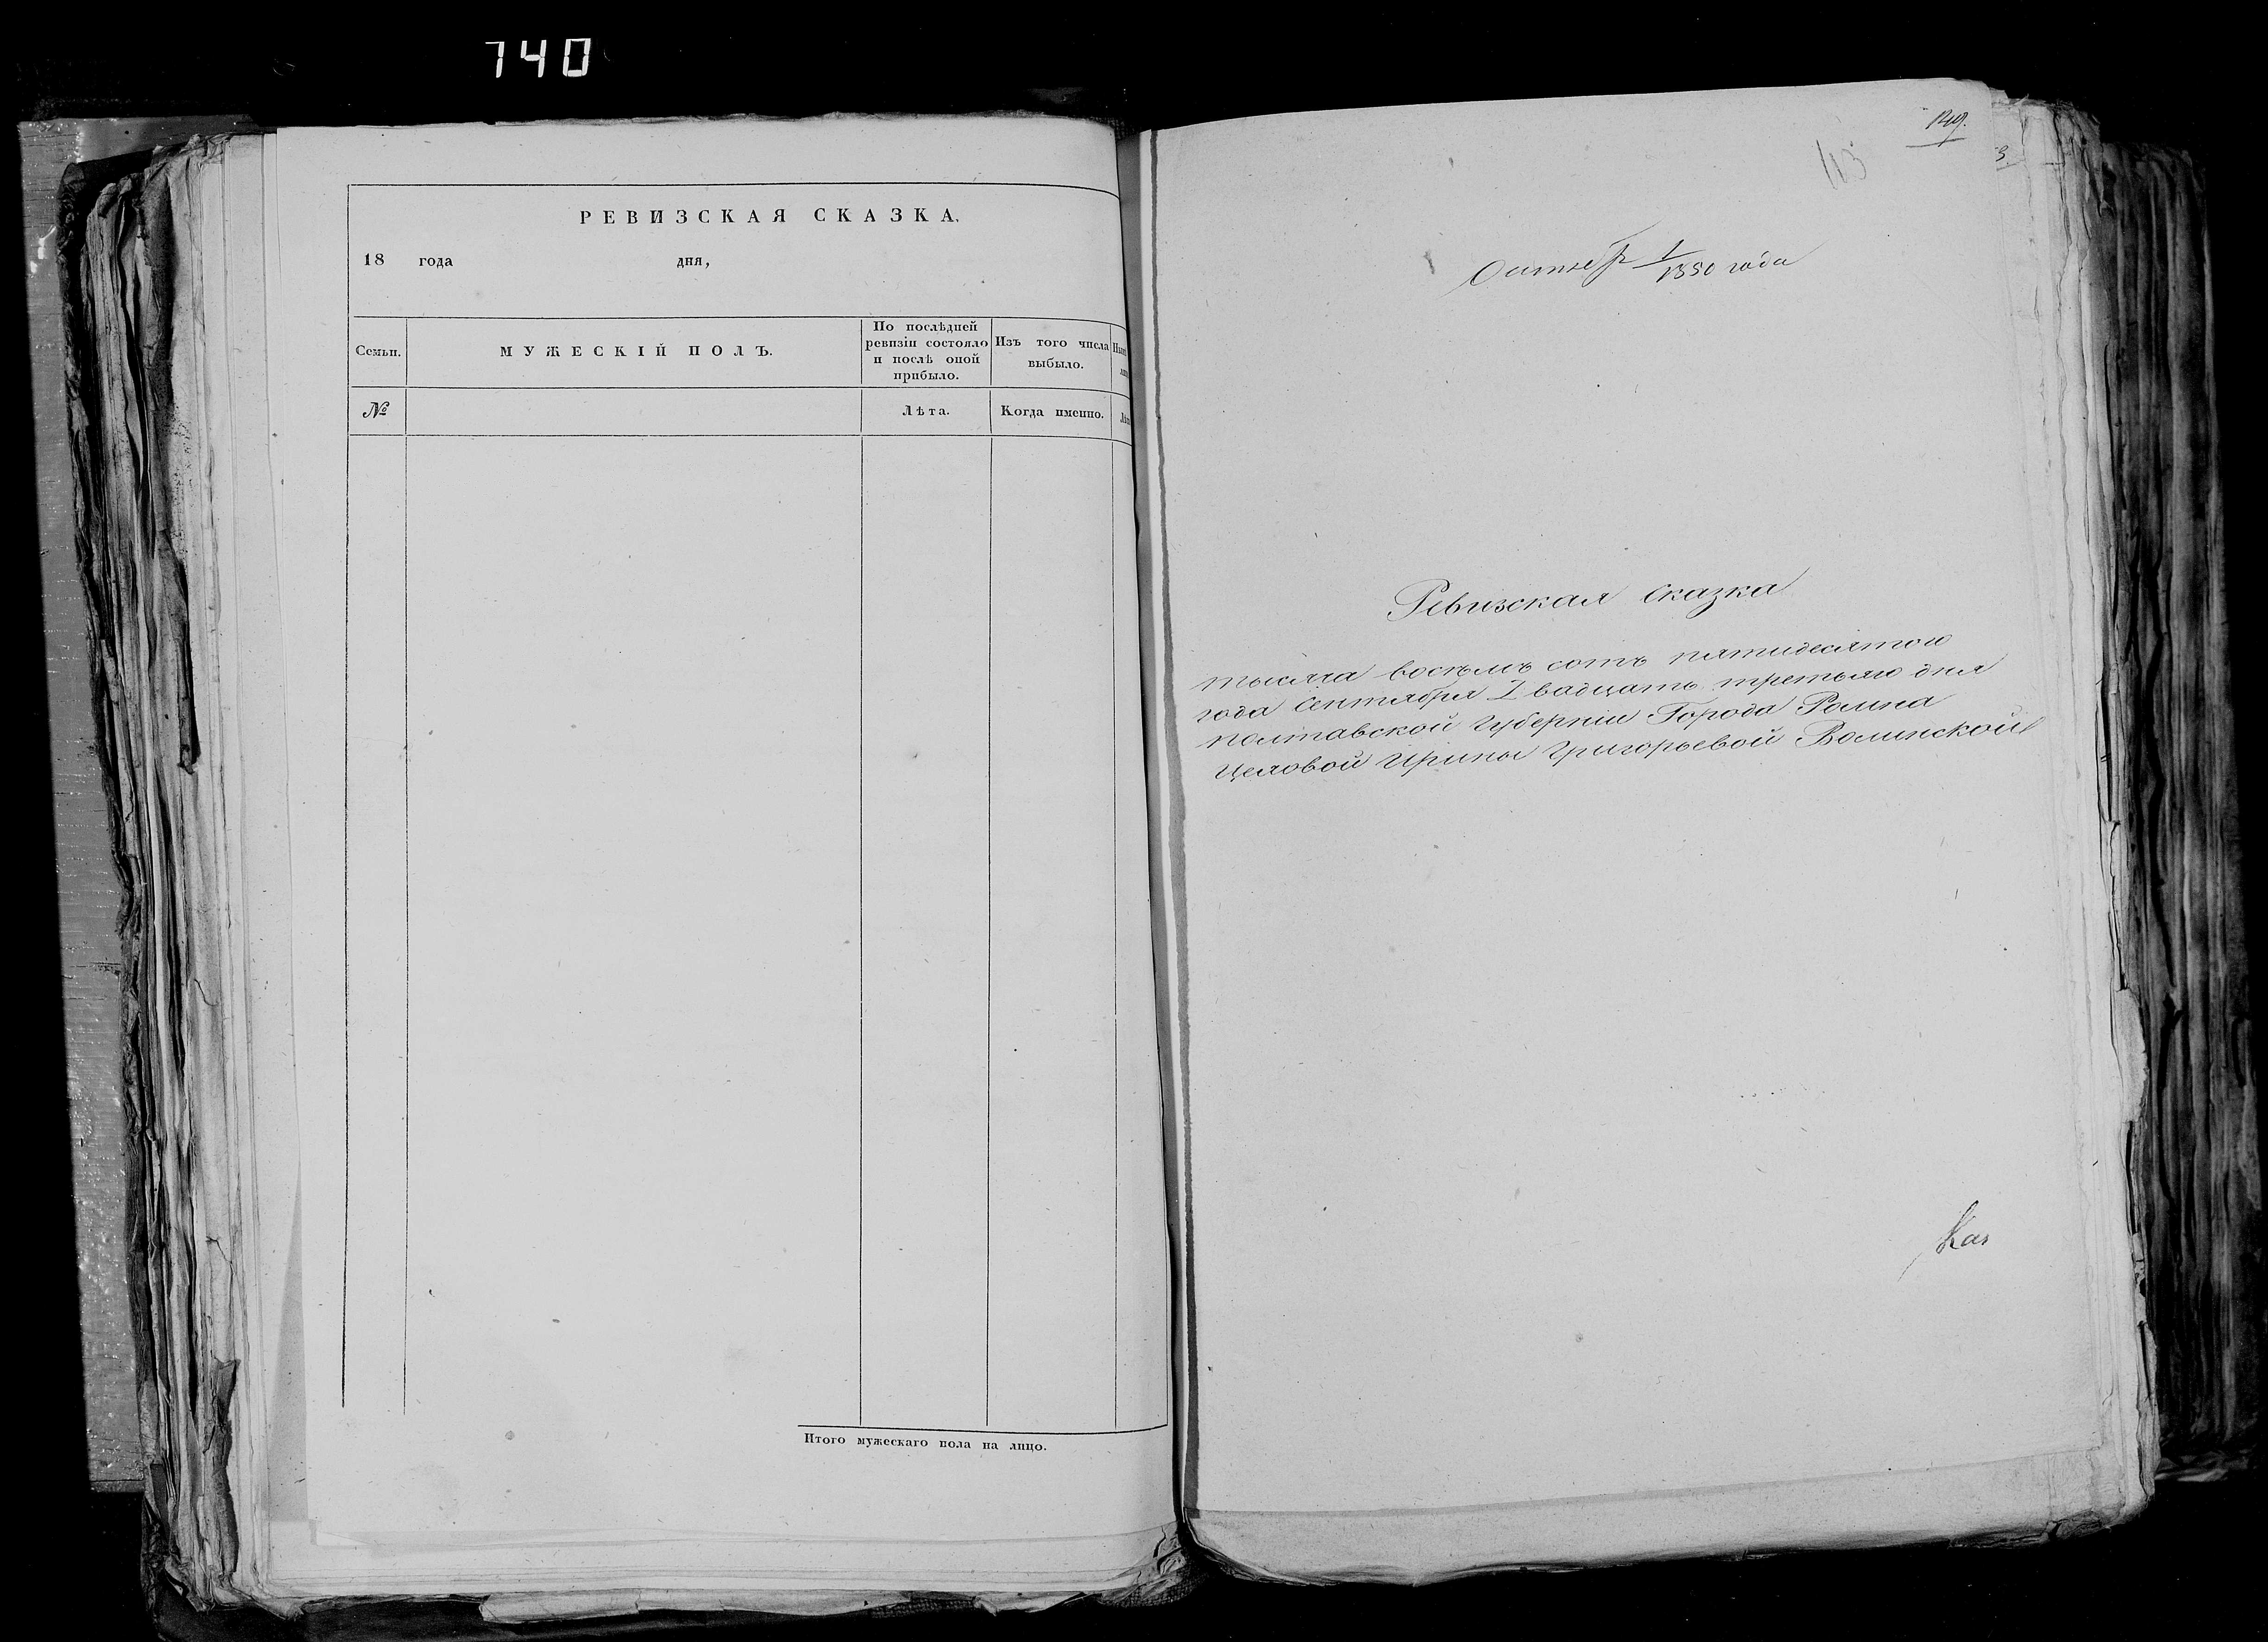 740
РЕВИЗСКАЯ СКАЗКА.
18 года дня,
Семьи.
МУЖЕСКІЙ ПОЛЪ.
По послѣдней
ревизіи состояло
и послѣ оной
прибыло.
Изъ того числа
выбыло.
№
Лѣта.
Когда именно.
Итого мужескаго пола на лицо.
149.
113
1/1850 года
Ревизская сказка
тысяча восѣмъ сотъ пятидесятого
года Сентября двадцать третьяго дня
полтавской губерніи Города Ромна
Ирины Григорьевой Волинской
Каз